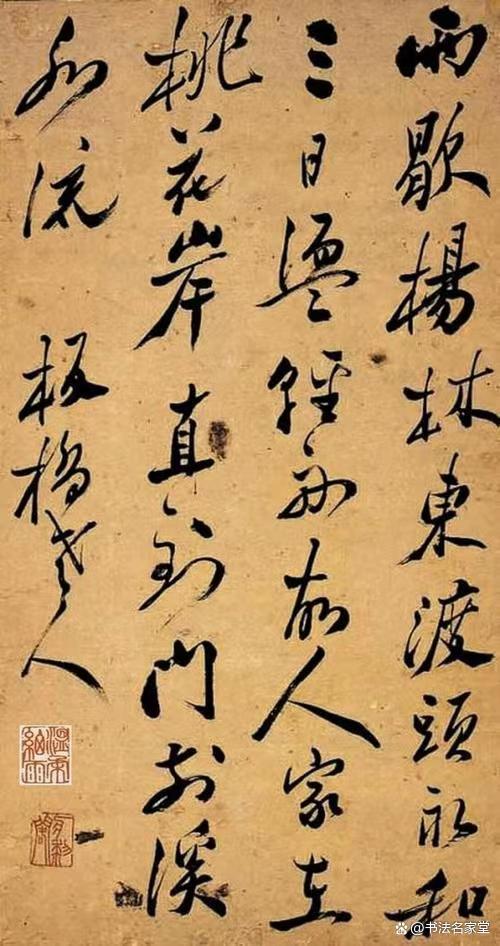 雨歇楊林東渡頭永和
三日盪輕舟故人家在
桃花岸直到門前溪
水流
板橋老人
书法名家堂